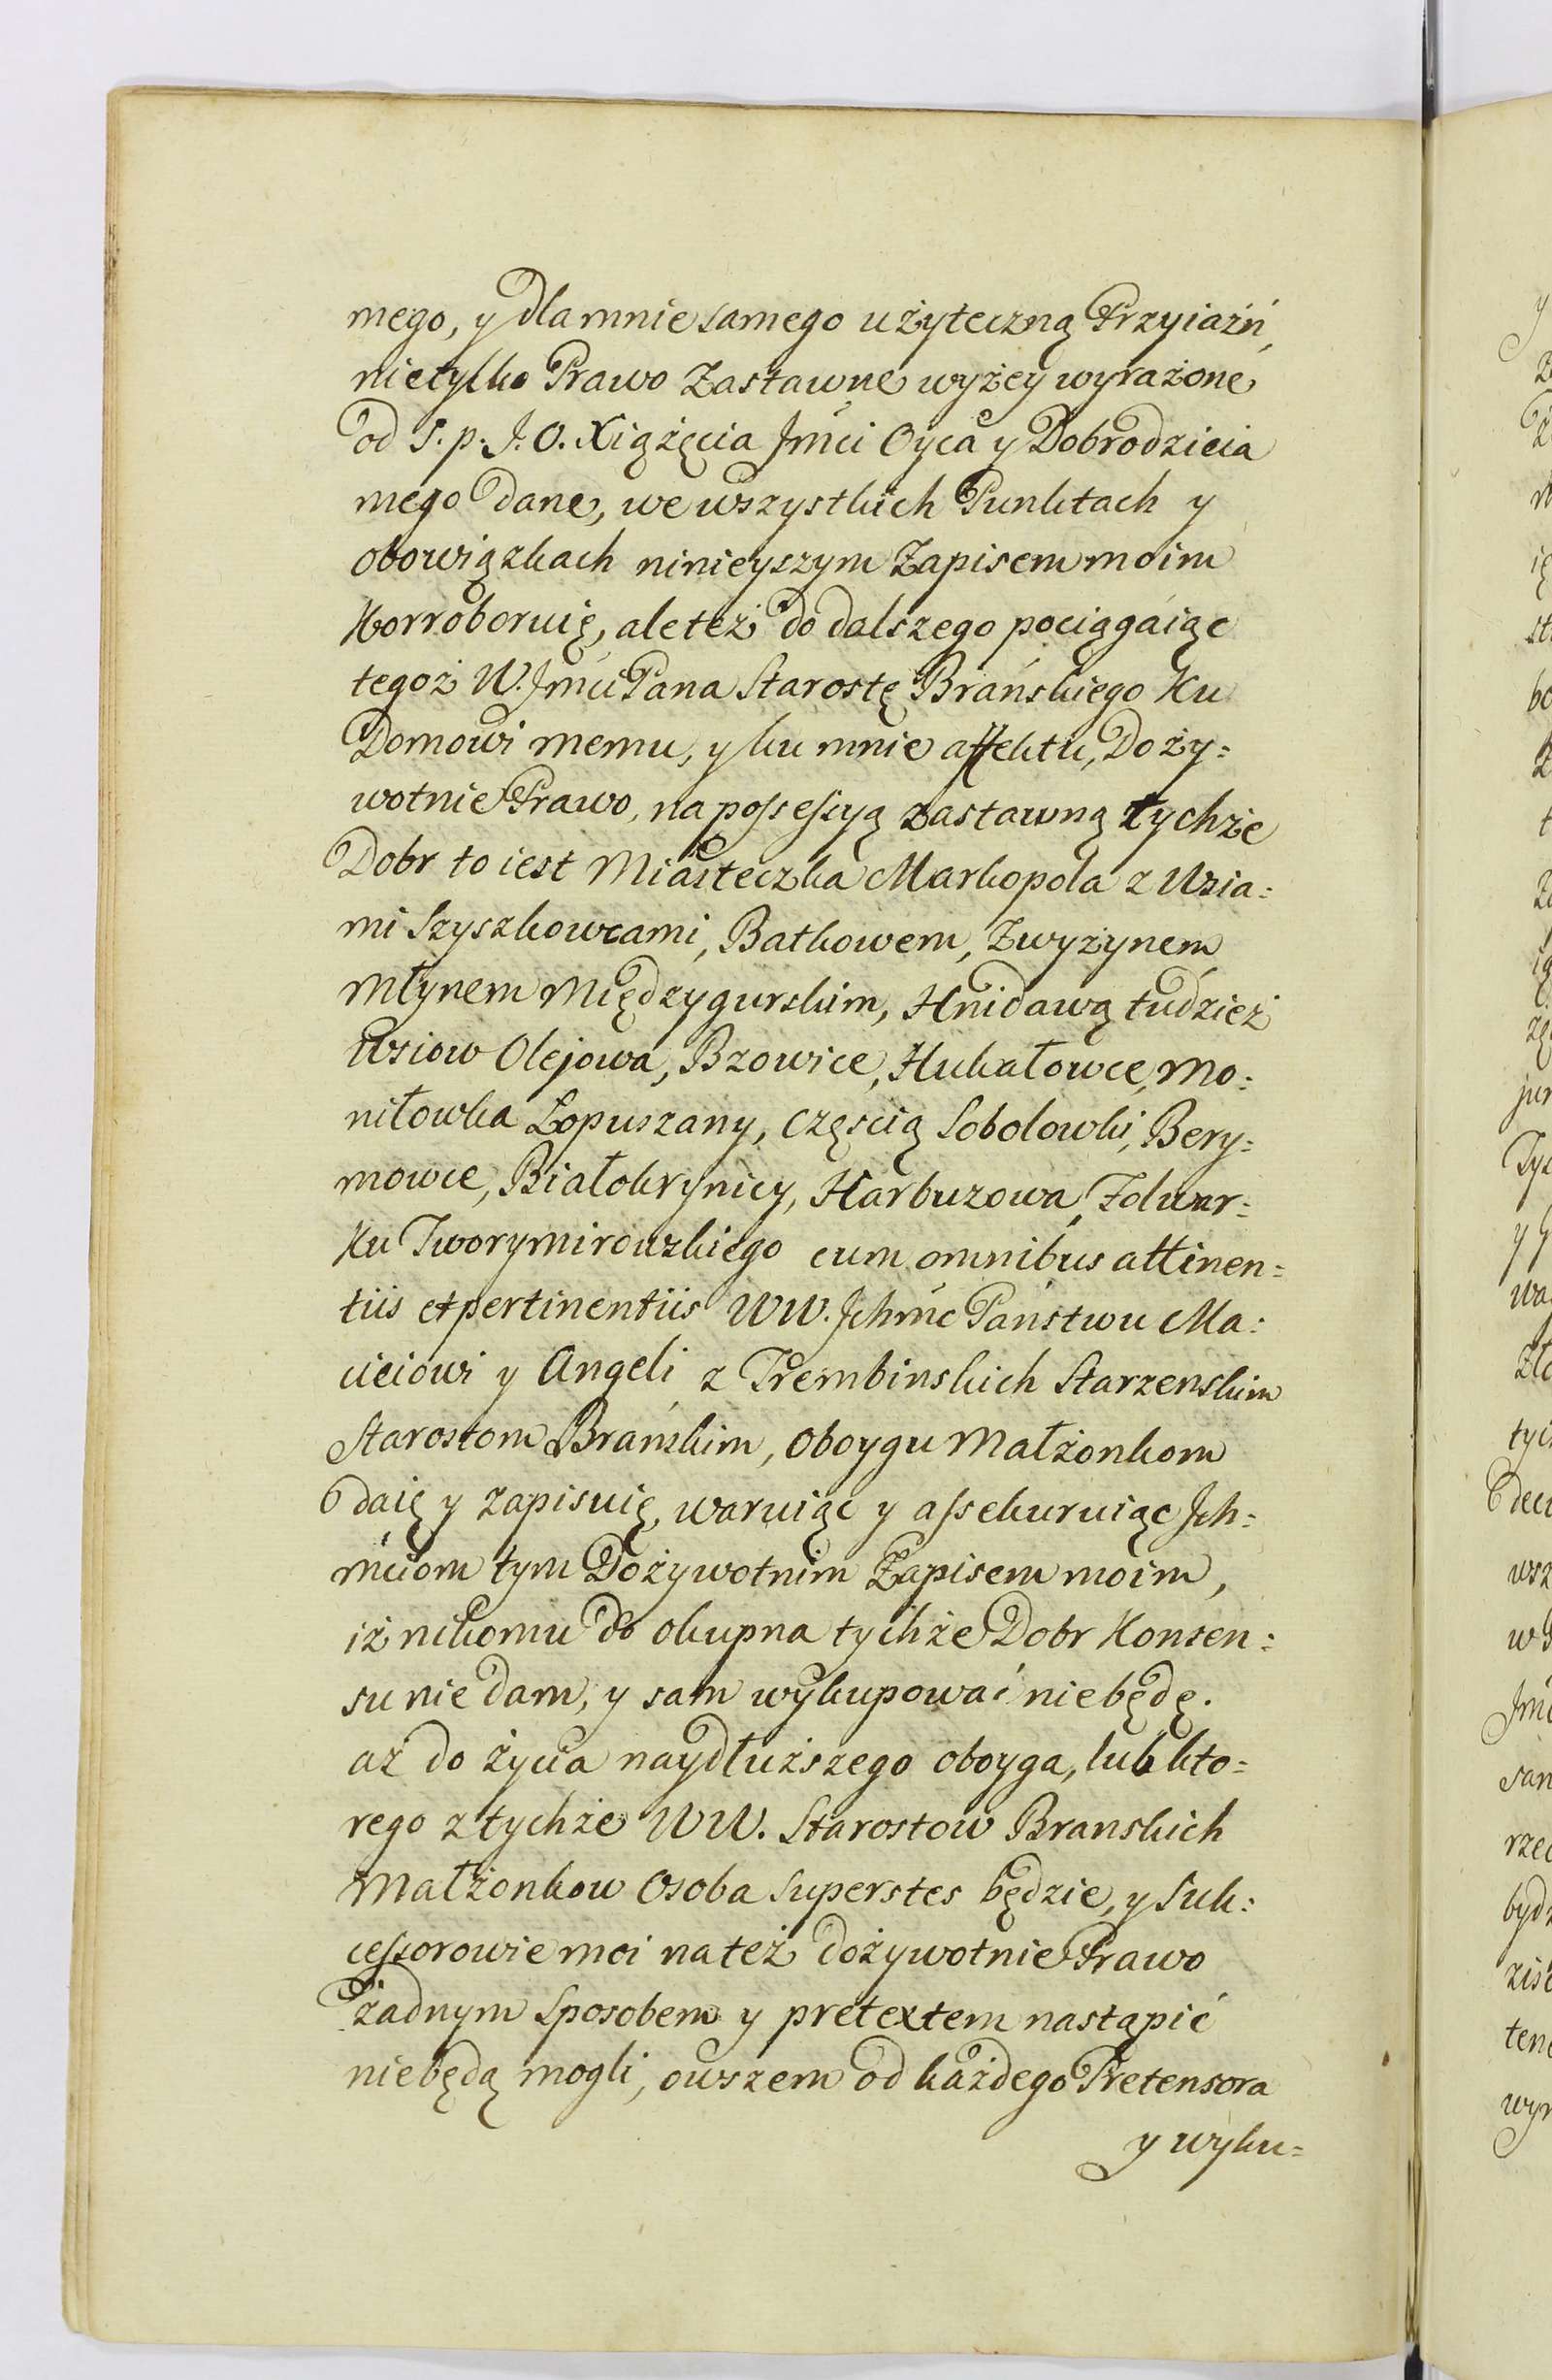 mego, y dla mnie samego użyteczną Przyiaźń,
nietylko Prawo Zastawne wyżey wyrażone
od S. p. J. O. Xiążęcia Jmci Oyca y Dobrodzieia
mego dane, we wszystkich Punktach y
obowiązkach ninieyszym Zapisem moim
Korroboruię, ale też do dalszego pociągaiąc
tegoż W. Jmci Pana Starostę Brańskiego Ku
Domowi memu, y ku mnie affektu, Doży=
wotnie Prawo, na possessyą zastawną tychże
Dobr to iest Miasteczka Markopola z Wsia=
mi Szyszkowcami, Batkowem, Zwyżynem
Młynem Międzygurskim, Hnidawą tudzież
Wsiow Olejowa, Bzowice, Hukałowce, Mo=
niłowka Łopuszany, częścią Sobolowki, Bery=
mowce, Białokrynicy, Harbuzowa, Folwar=
Ku Tworymirowzkiego cum omnibus attinen=
tiis et pertinentiis WW. Jchmć Państwu Ma=
cieiowi y Angeli z Trembinskich Starzenskim
Starostom Brańskim, oboygu Małżonkom
daię y zapisuię, waruiąc y assekuruiąc Jch=
mciom tym Dożywotnim Zapisem moim,
iż nikomu do okupna tychże Dobr Konsen=
su nie dam, y sam wykupować niebędę.
aż do życia naydłuższego oboyga, lub kto=
rego z tychże WW. Starostow Branskich
Małżonkow Osoba Superstes będzie, y Suk=
cessorowie moi na też dożywotnie Prawo
żadnym Sposobem y pretextem nastąpić
niebędą mogli, owszem od każdego Pretensora
y wyku=